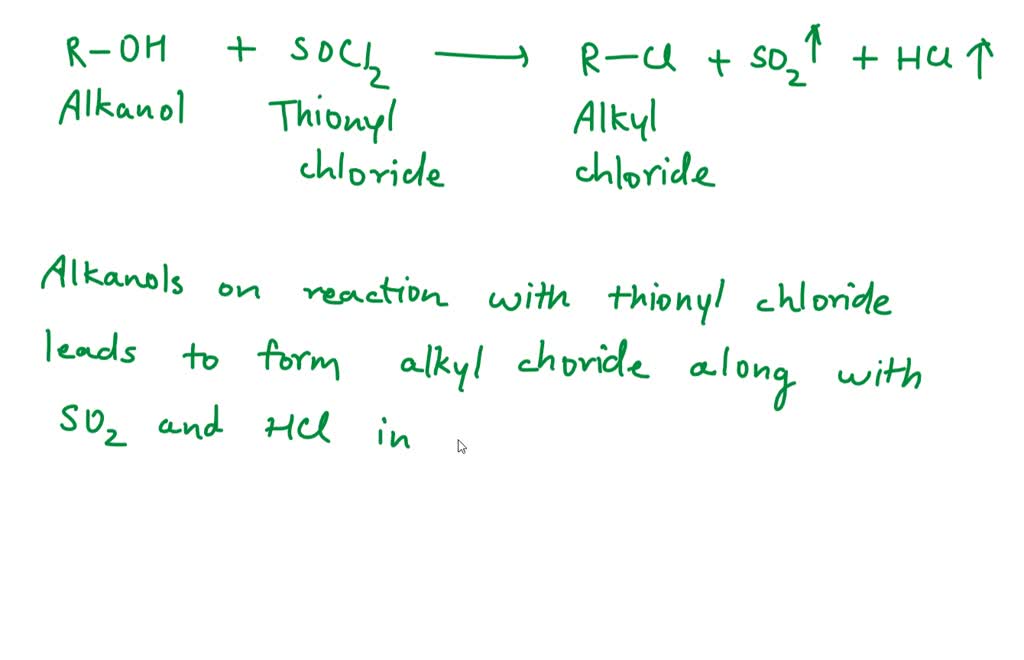 R-OH + SOCl₂ ⟶ R-Cl + SO₂↑ + HCl↑
Alkanol Thionyl Alkyl
chloride chloride
Alkanols on reaction with thionyl chloride
leads to form alkyl choride along with
SO₂ and HCl in